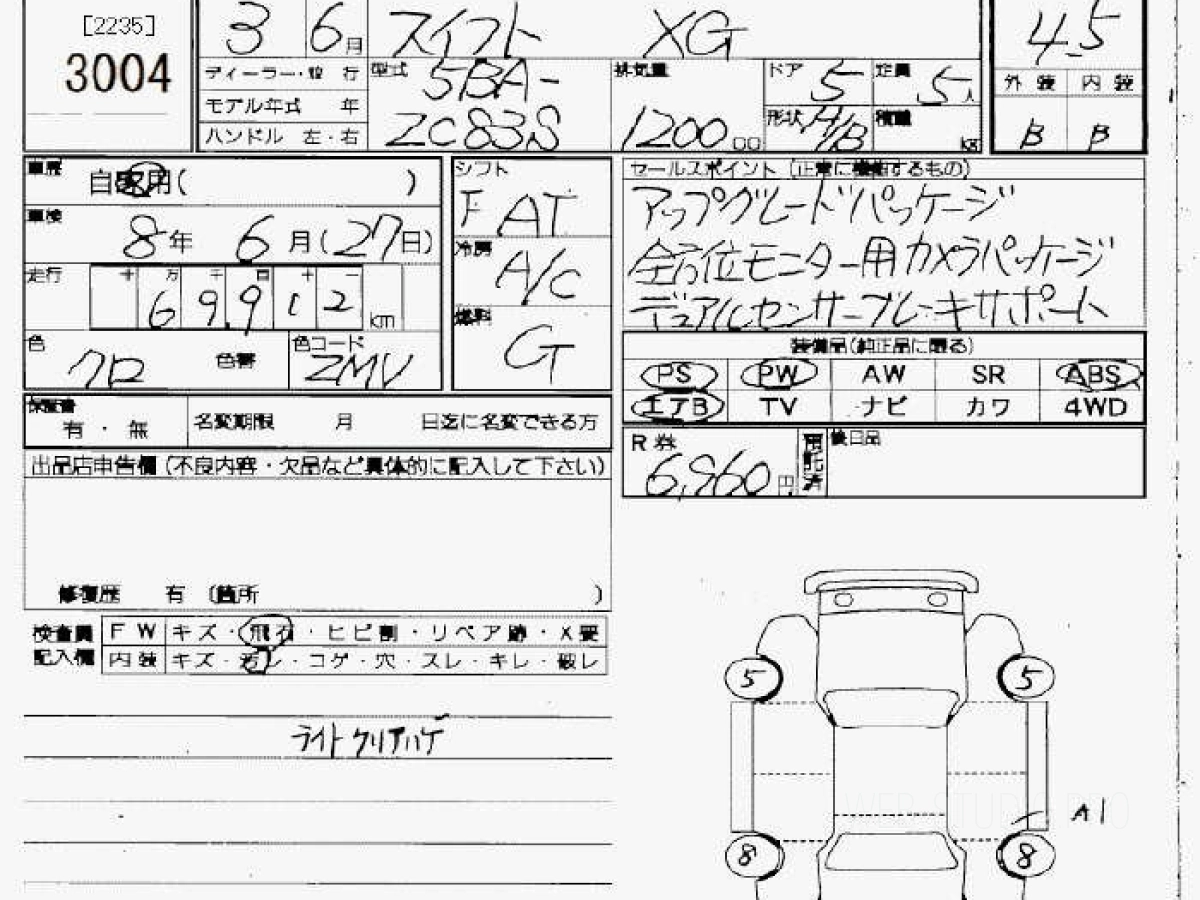 [2235]
3004
3 6月 スイフト XG 4.5
ディーラー・並行 型式 5BA- 排気量 ドア 5 定員 5人 外装 内装
モデル年式 年
ハンドル 左・右 ZC83S 1200 00 形状 H/B 積載 kg B B
車歴 自家用( )
シフト F AT
セールスポイント (正常に機能するもの)
アップグレードパッケージ
車検 8年 6月(27日)
冷房 A/C
全方位モニター用カメラパッケージ
走行 十 万 千 百 十 一
69,912 km
デュアルセンサーブレーキサポート
燃料 G
色 クロ 色番 色コード ZMV
装備品(純正品に限る)
PS PW AW SR ABS
エアB TV ナビ カワ 4WD
保証書
有・無 名変期限 月 日迄に名変できる方
R券 6,960円 預託済 後日品
出品店申告欄(不良内容・欠品など具体的に記入して下さい)
修復歴 有 (箇所 )
検査員 FW キズ・飛石・ヒビ割・リペア跡・X要
記入欄 内装 キズ・汚レ・コゲ・穴・スレ・キレ・破レ
5 5
ライトクリアハゲ
A1
8 8